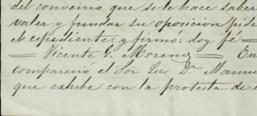 del convenio que se le hace saber
valer y fundar su oposicion pide
el espediente; y firmó: doy fé
Vicente G. Moreno
compareció el Sor Lic. Dn. Manuel
que exhibe con la protesta de